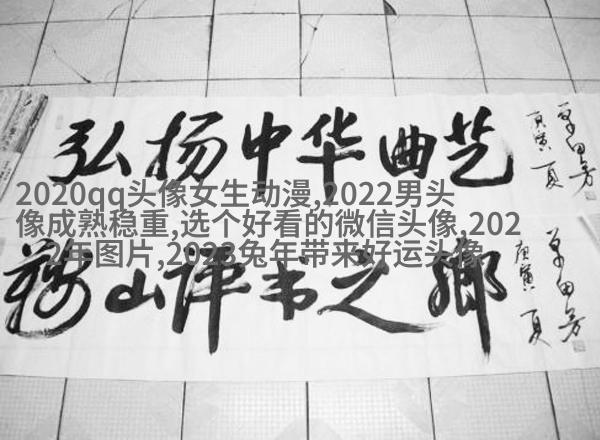 弘扬中华曲艺
庚寅 夏
单田芳
2020qq头像女生动漫,2022男头
像成熟稳重,选个好看的微信头像,202
2年图片,2023兔年带来好运头像
鞍山评书之鄉
庚寅 夏
单田芳